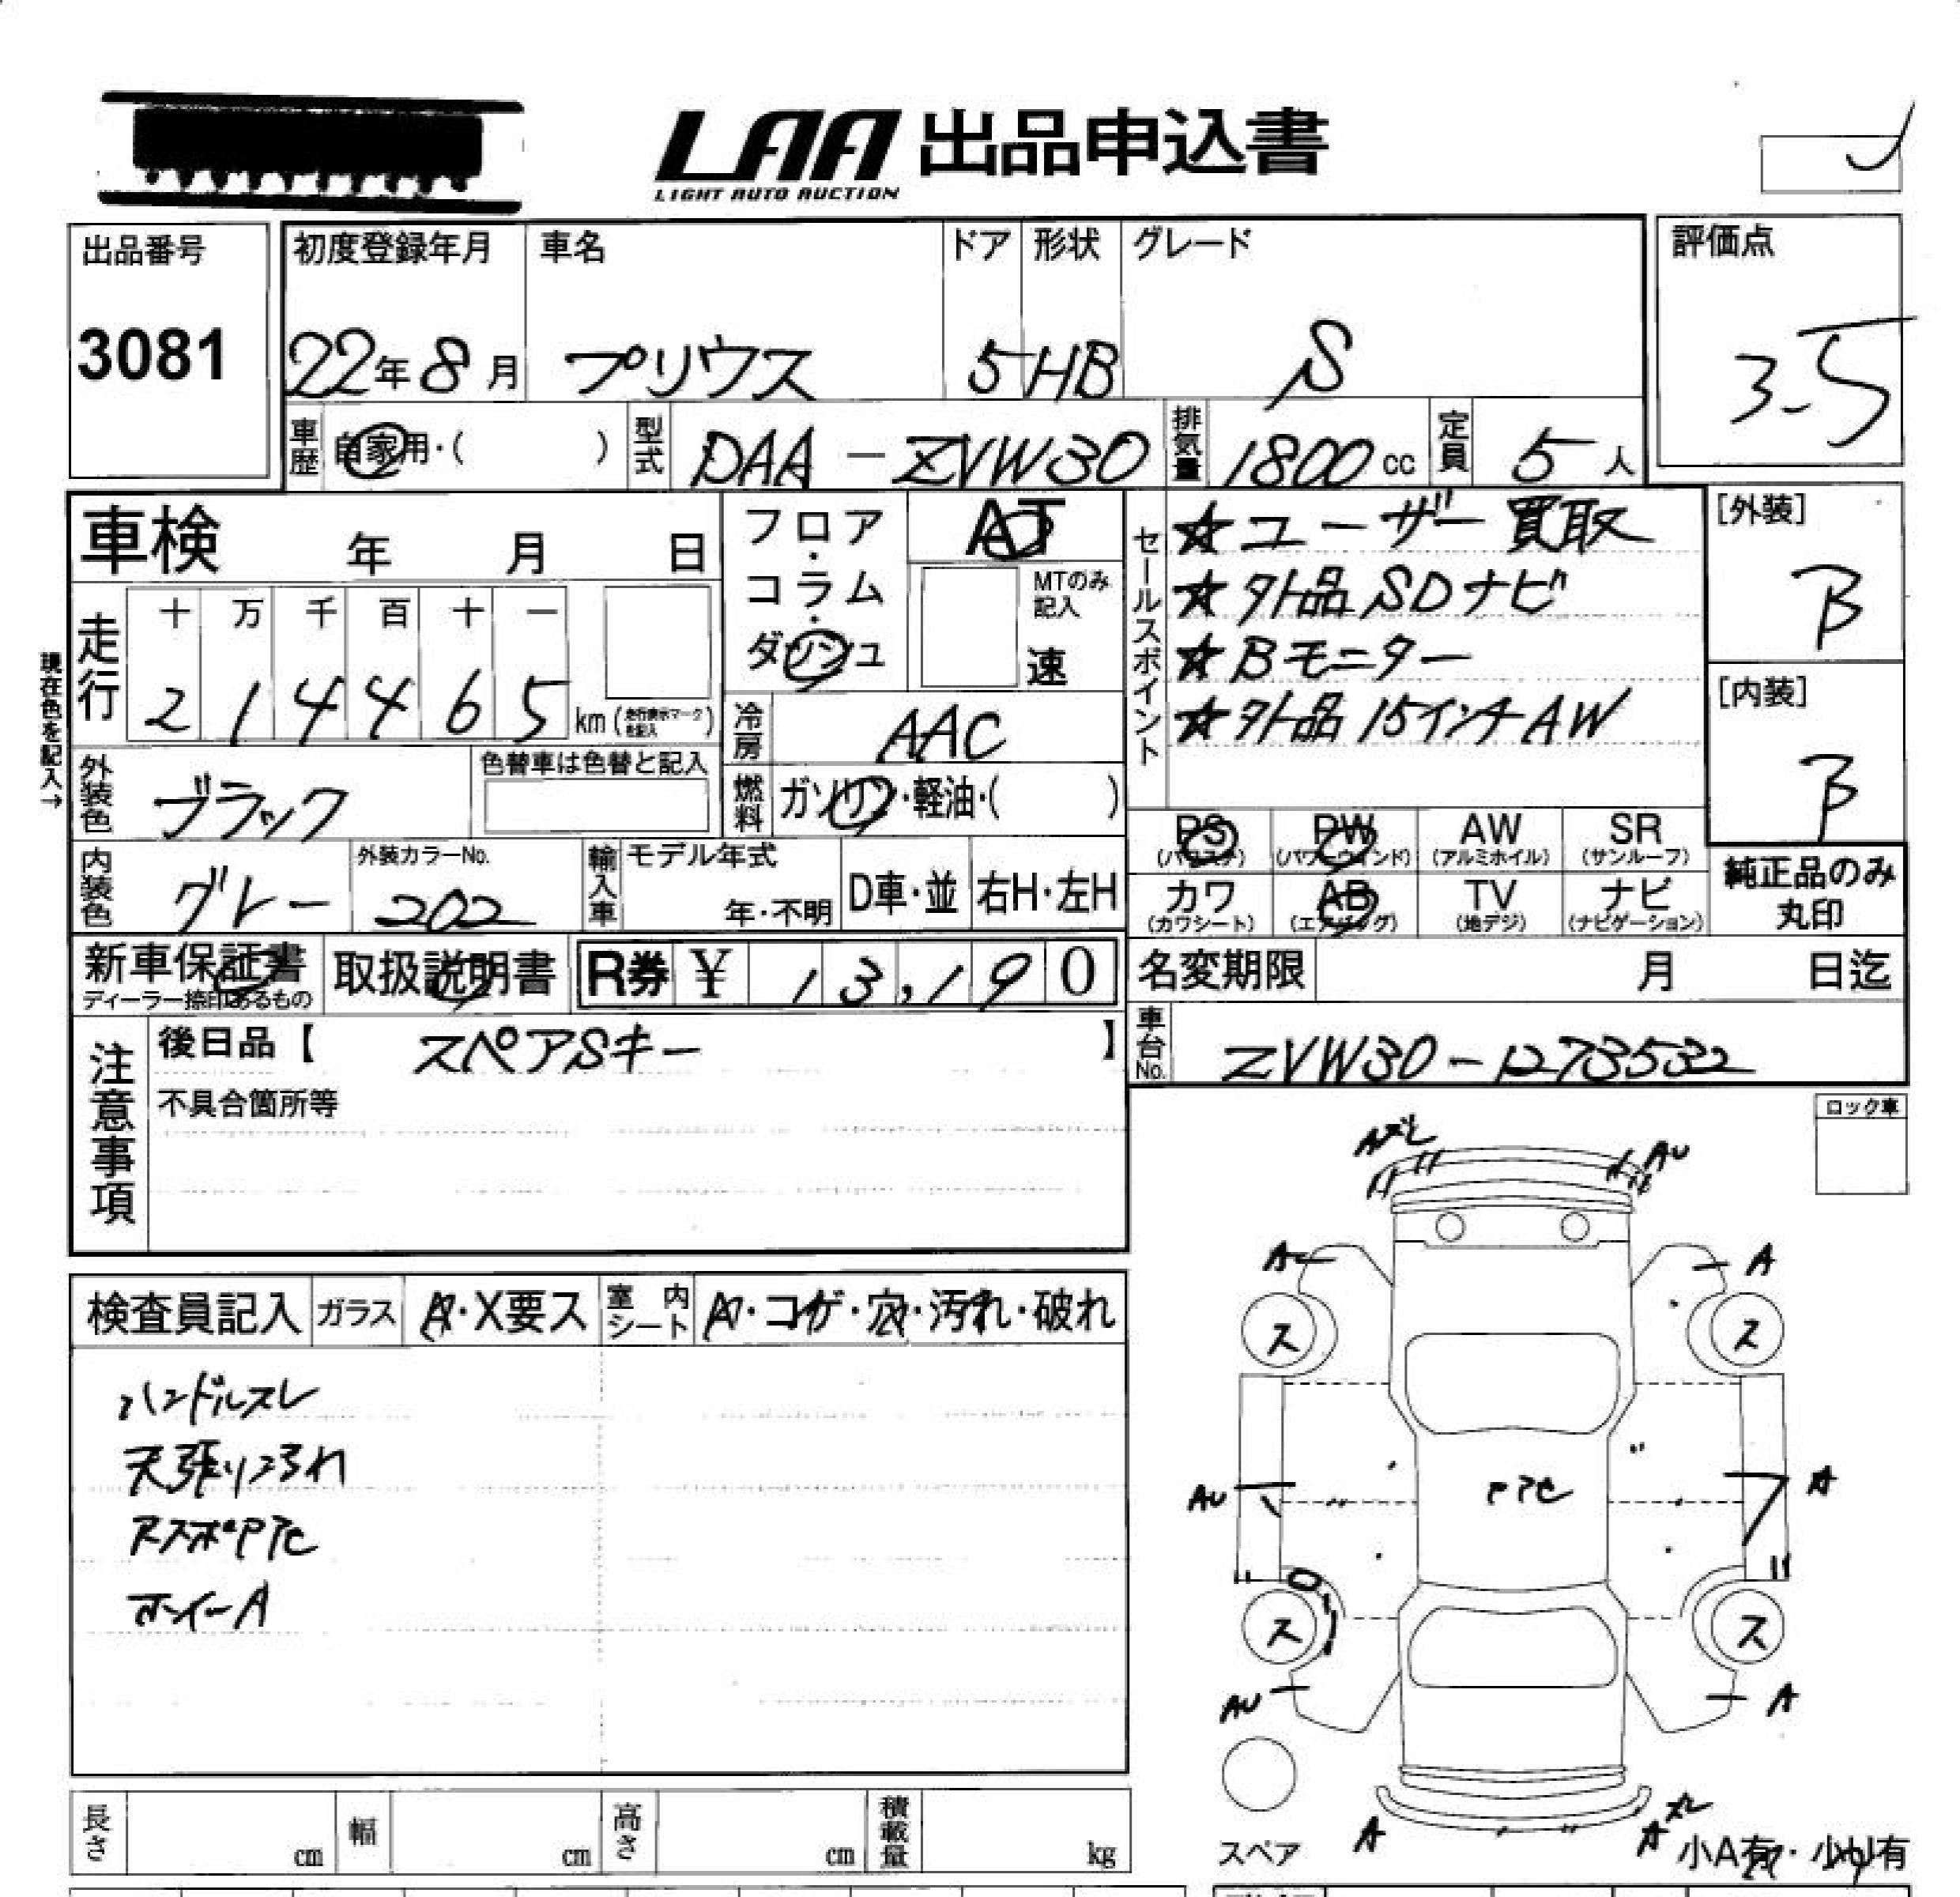 LAA 出品申込書
LIGHT AUTO AUCTION
出品番号
3081
初度登録年月
22年8月
車名
プリウス
ドア
5
形状
HB
グレード
S
評価点
3.5
車歴
自家用・( )
型式
DAA-ZVW30
排気量
1800 cc
定員
5人
車検 年 月 日
フロア・コラム・ダッシュ
AT
MTのみ記入
速
セールスポイント
☆ユーザー買取
☆外品SDナビ
☆Bモニター
☆外品15インチAW
[外装]
B
[内装]
B
現在色を記入→
走行
十 万 千 百 十 一
2 1 4 4 6 5 km (走行表示マークを記入)
冷房
AAC
外装色
ブラック
色替車は色替と記入
燃料
ガソリン・軽油・( )
内装色
グレー
外装カラーNo.
202
輸入車
モデル年式
年・不明
D車・並
右H・左H
PS (パワステ)
PW (パワーウインド)
AW (アルミホイル)
SR (サンルーフ)
カワ (カワシート)
AB (エアバッグ)
TV (地デジ)
ナビ (ナビゲーション)
純正品のみ丸印
新車保証書
ディーラー捺印あるもの
取扱説明書
R券 ¥ 13,190
名変期限 月 日迄
注意事項
後日品【 スペアSキー 】
不具合箇所等
車台No.
ZVW30-1273532
ロック車
検査員記入
ガラス
A・X要ス
室内シート
A・コゲ・穴・汚れ・破れ
ハンドルスレ
天張りよごれ
ホイールA
AU
A
A
ス
ス
AU
A
PTC
ス
ス
AU
A
スペア
A
A
小A有・小U有
長さ cm
幅 cm
高さ cm
積載量 kg